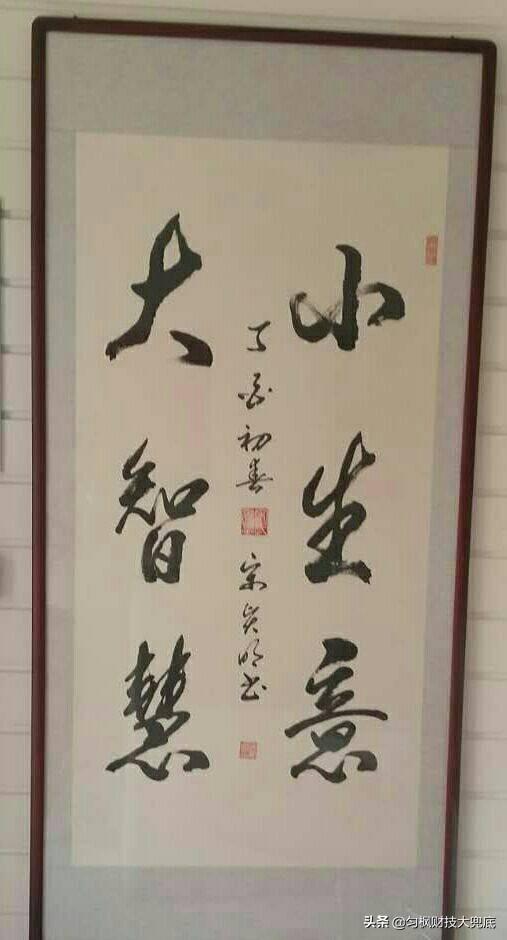 小生意
丁酉初春
宋 明书
大智慧
头条 @匀枫财技大兜底